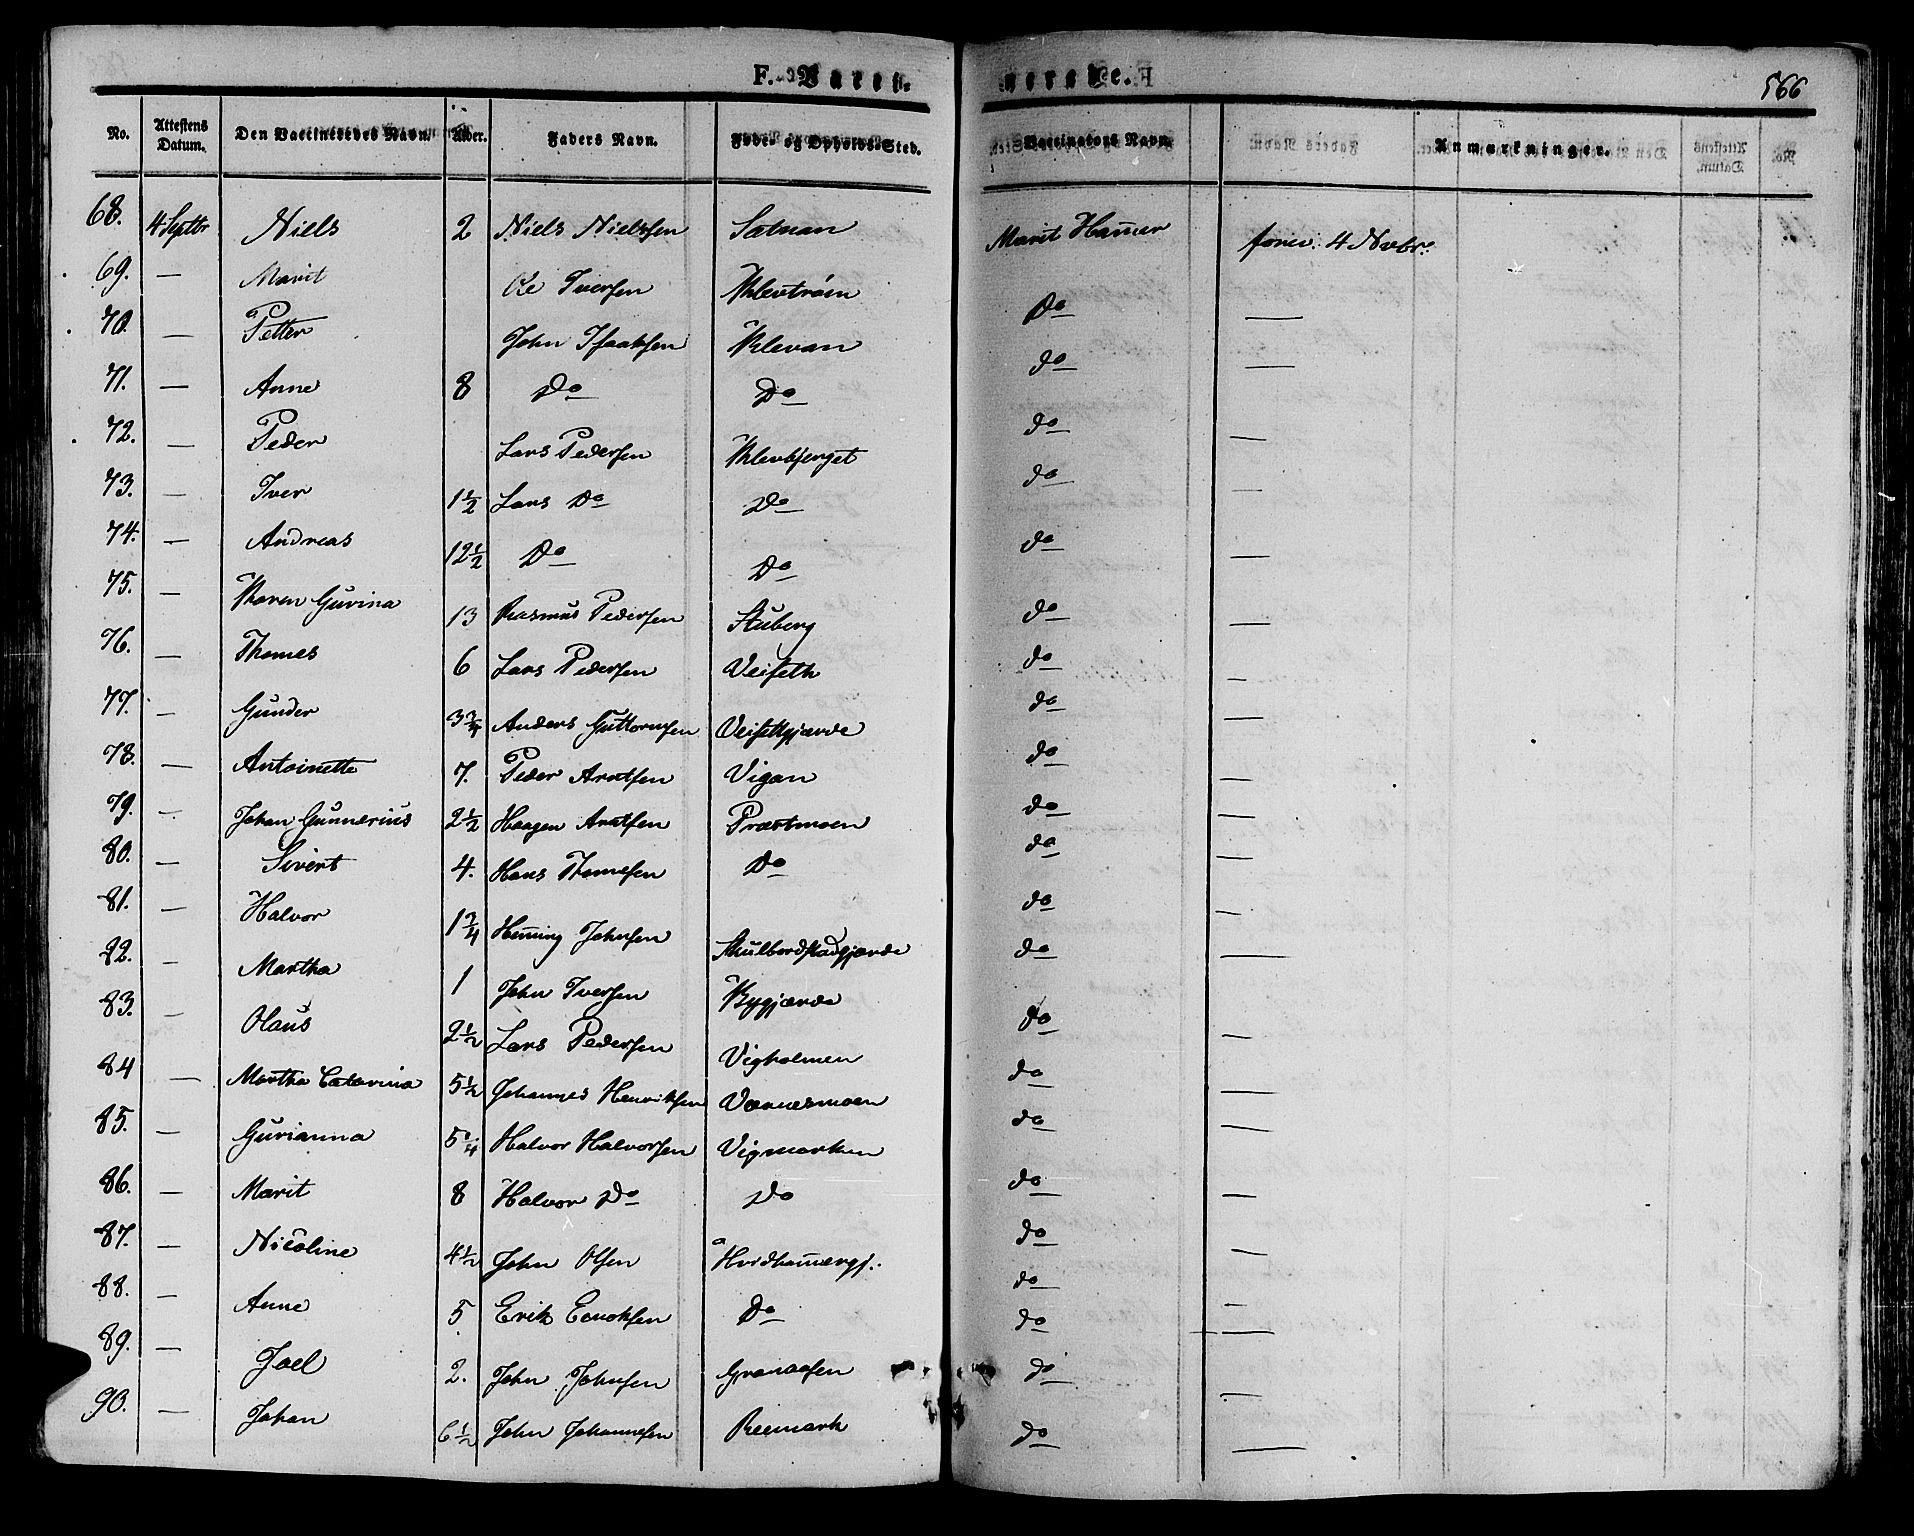 F. Vacci- nerede. 566
No. Attestens Datum. Den Vaccineredes Navn. Alder. Faders Navn. Føde- og Opholds-Sted. Vaccinators Navn. Anmærkninger.
68. 4 Septbr Niels 2 Niels Nielssen Sætnan Marit Ham̄er forev. 4 Novbr.
69. — Marit Ole Iversen Klevtrøen Do —
70. — Petter John Isaaksen Klevan do —
71. — Anne 8 Do Do do —
72. — Peder Lars Pedersen Klevbjerget do —
73. — Iver 1½ Lars Do Do do —
74. — Andreas 12½ Do Do do —
75. — Karen Gurina 13 Rasmus Pedersen Stuberg do —
76. — Thomas 6 Lars Pedersen Veiseth do —
77. — Gunder 3¾ Anders Guttormsen Veisetgjærde do —
78. — Antoinette 7. Peder Arntsen Vigan do —
79. — Johan Gunnerius 2½ Haagen Arntsen Præstmoen do —
80. — Sivert 4. Hans Thomesen Do do —
81. — Halvor 1¾ Hem̄ing Johnsen Skulbordstadgjærde do —
82. — Martha 1 John Iversen Rygjærde do —
83. — Olaus 2½ Lars Pedersen Vigholmen do —
84 — Martha Catarina 5½ Johannes Henriksen Værnesmoen do —
85. — Gurianna 5¾ Halvor Halvorsen Vigmarken do —
86. — Marit 8 Halvor Do Do do —
87. — Nicoline 4½ John Olsen Hvidham̄ergj. do —
88. — Anne 5 Erik Enoksen Do do —
89. — Joel 2. John Johnsen Granaasen do —
90. — Johan 6½ John Johannesen Reemark do —